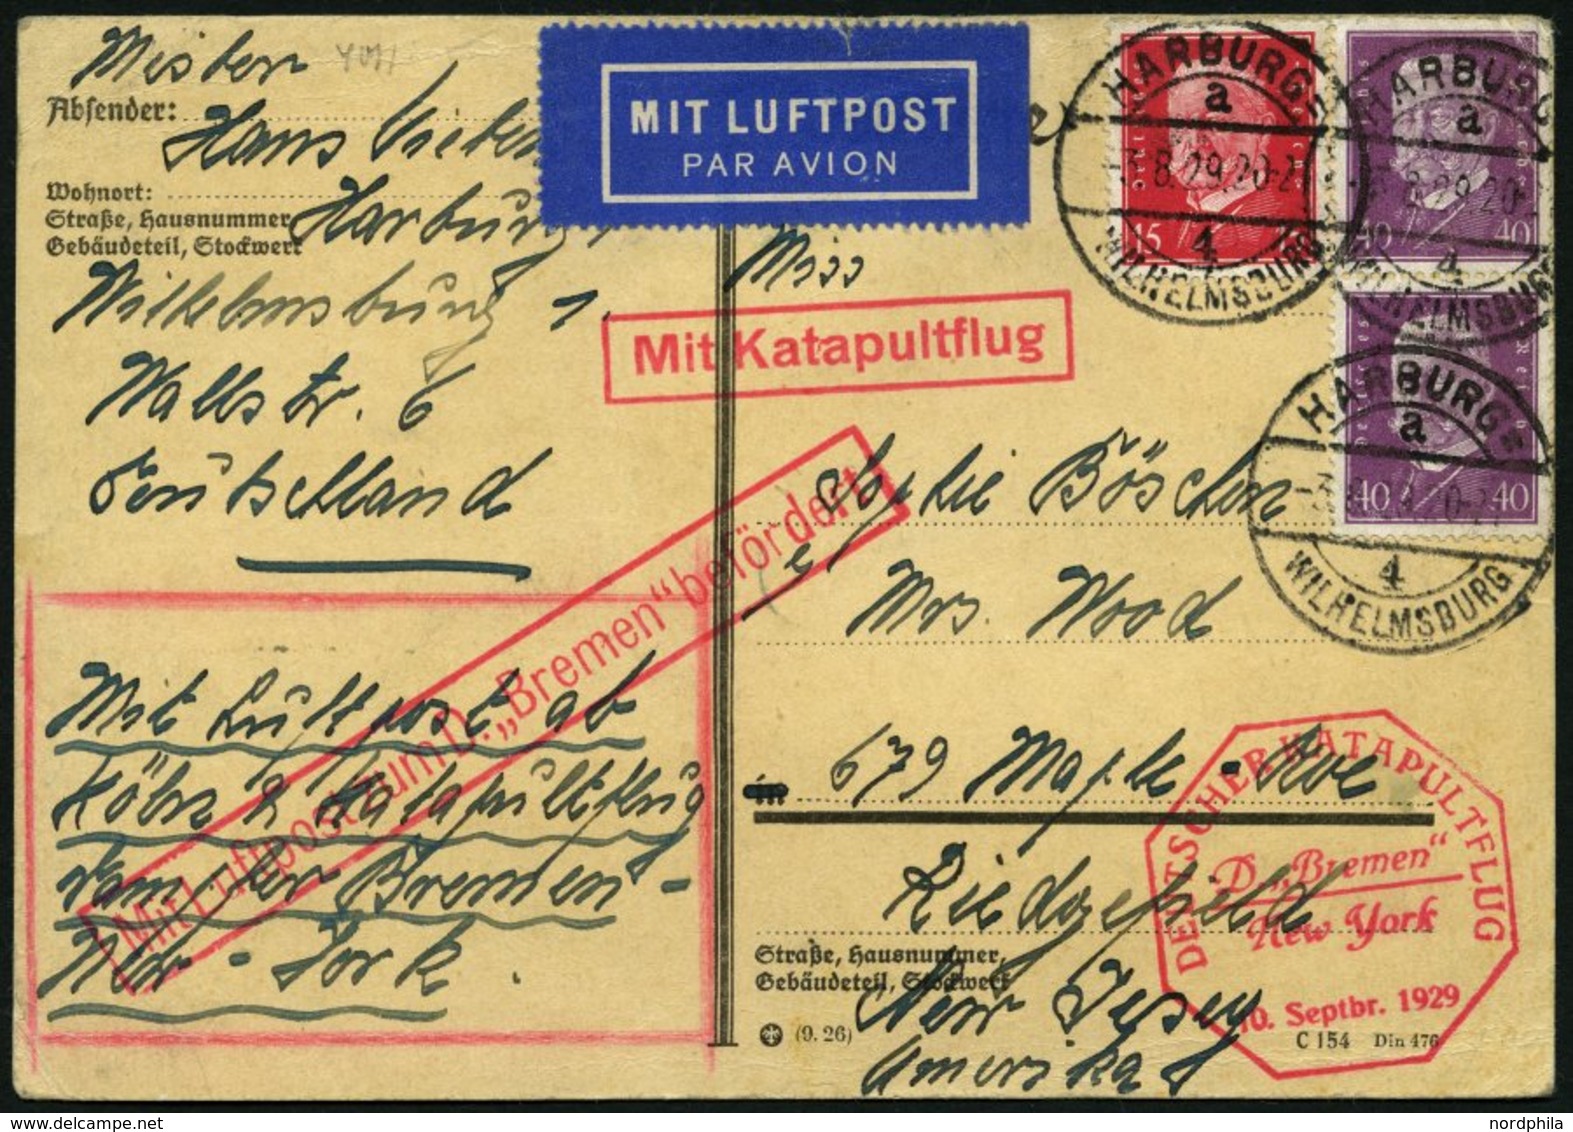 Mister
Absender:
Hans
Wohnort:
Straße, Hausnummer,
Gebäudeteil, Stockwerk
Harburg
Wilhelmsburg 1.
Wallstr. 6
Deutschland
Mit Luftpost ab
Köln & Katapultflug
vam der Bremen -
New - York.
MIT LUFTPOST
PAR AVION
Mit Katapultflug
Mit Luftpost zum D. „Bremen“ befördert
Miss
Sophie Böschen
Mrs. Wood
in
679 Maple - Ave
Ridgefield
Straße, Hausnummer,
Gebäudeteil, Stockwerk
New Jersey
Amerika
(9. 26)
C 154 Din 476
HARBURG
a
8.29.20-2
4
WILHELMSBURG
15
HARBURG
a
8.29.20-
4
WILHELMSBURG
40 40
HARBURG
a
4
WILHELMSBURG
40 40
DEUTSCHER KATAPULTFLUG
D. „Bremen“
New York
10. Septbr. 1929
www.nordphila.com